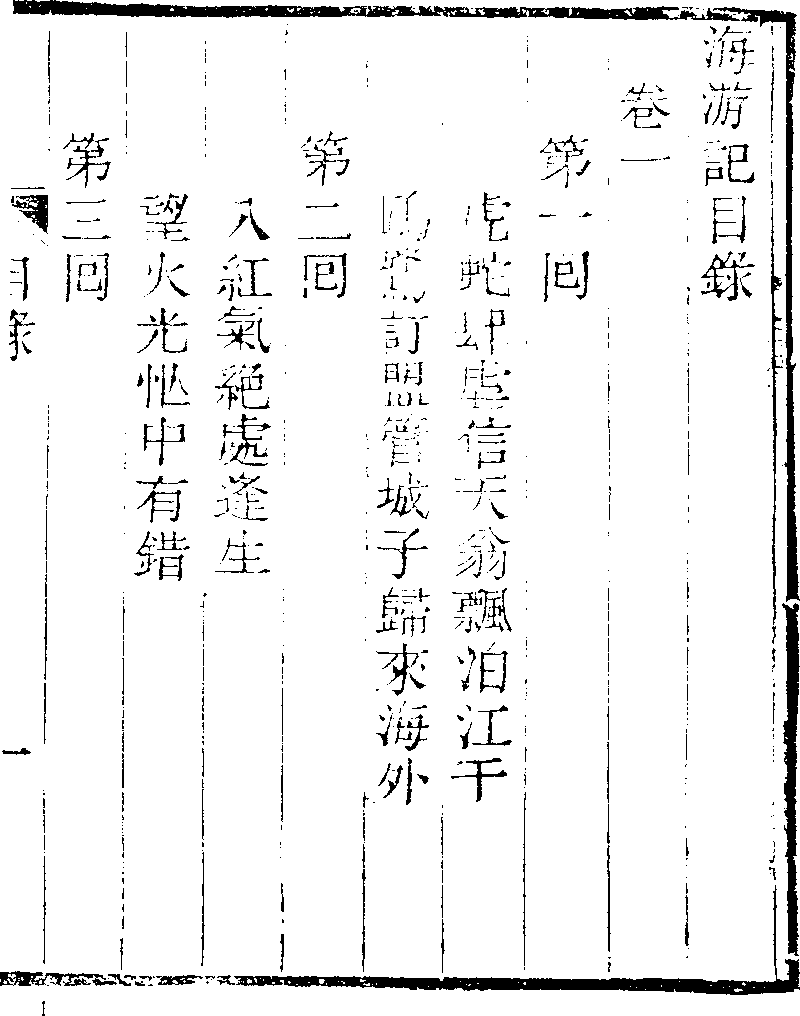 海游記目錄
卷一
第一回
虎蛇肆虐信天翁飄泊江干
鷗鷺訂盟管城子歸來海外
第二回
入紅氣絕處逢生
望火光忙中有錯
第三回
目錄
一
1